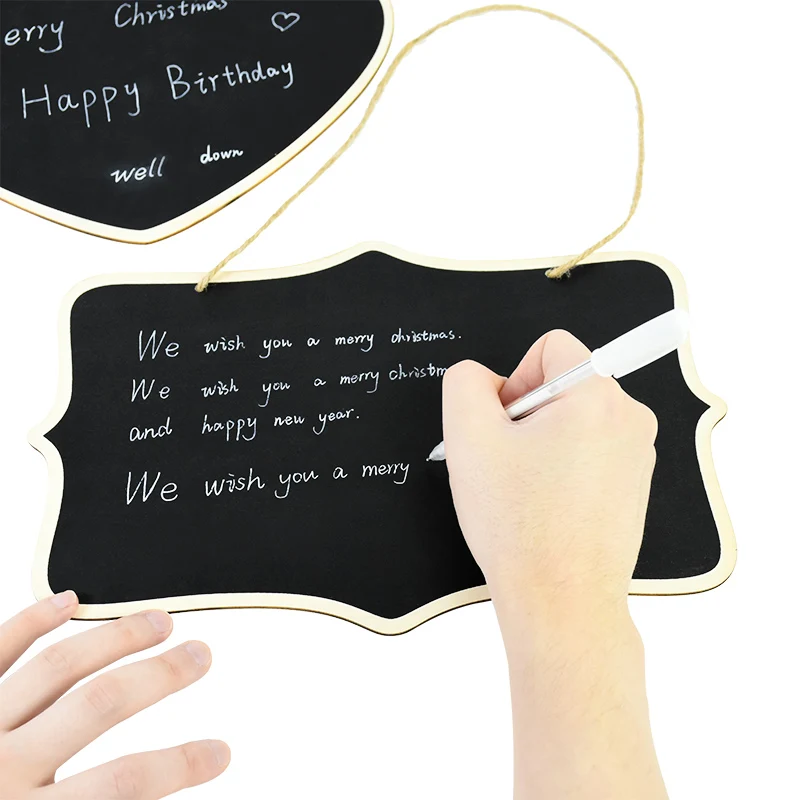 erry Christmas
Happy Birthday
well down
We wish you a merry christmas.
We wish you a merry christm
and happy new year.
We wish you a merry